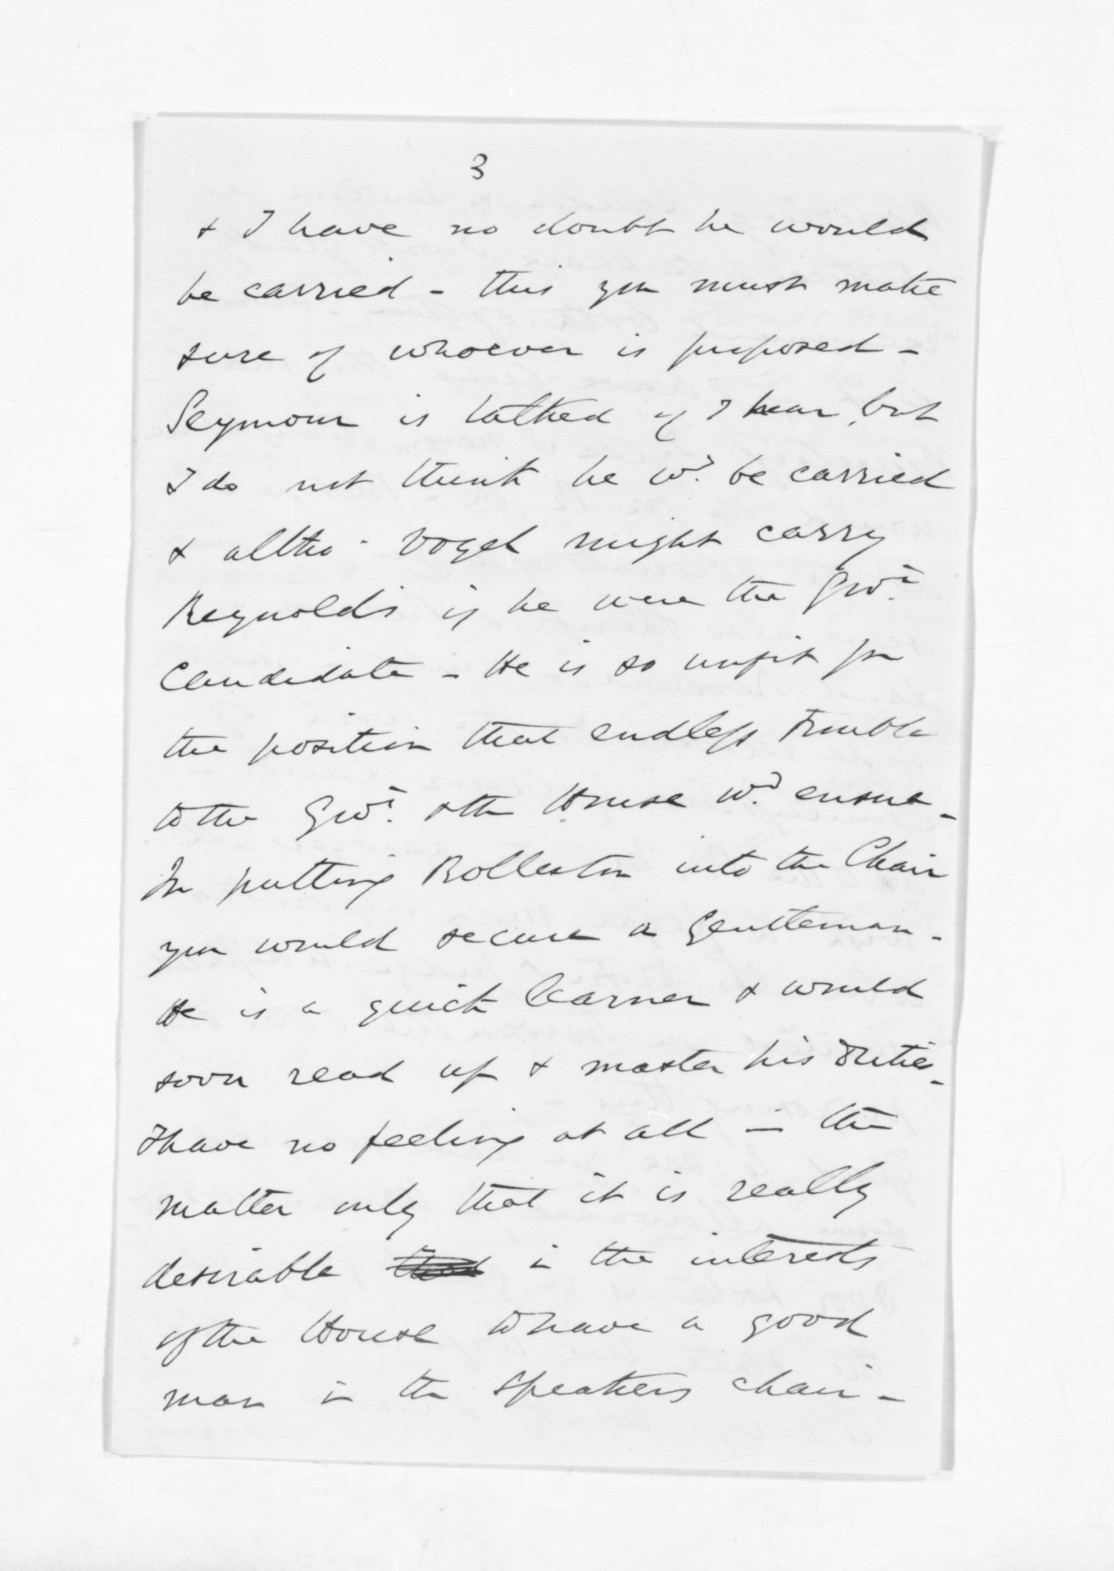 3
& I have no doubt he would
be carried - this you must make
sure of whoever is proposed -
Seymour is talked of I hear, but
I do not think he wd. be carried
& altho' Vogel might carry
Reynolds if he were the Govt.
Candidate - He is so unfit for
the position that endless trouble
to the Govt. & the House wd. ensue -
In putting Rolleston into the Chair
you would secure a Gentleman -
He is a quick learner & would
soon read up & master his duties -
I have no feeling at all in the
matter only that it is really
desirable that in the interests
of the House to have a good
man in the Speakers chair -